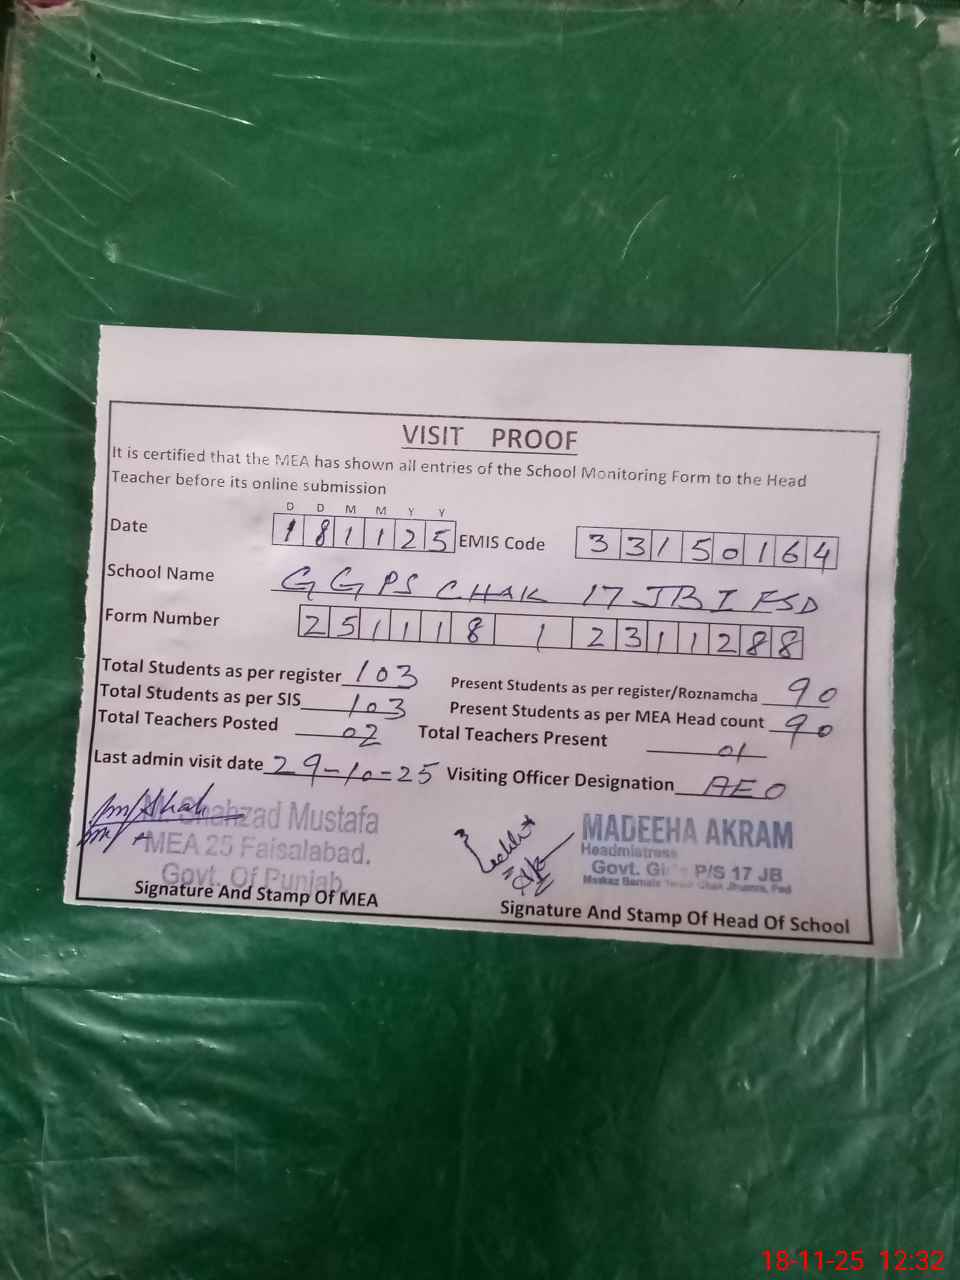 VISIT PROOF
It is certified that the MEA has shown all entries of the School Monitoring Form to the Head
Teacher before its online submission
D D M M Y Y
Date 181125 EMIS Code 33150164
School Name GGPS CHAK 17 JB I FSD
Form Number 251118 1 2311288
Total Students as per register 103 Present Students as per register/Roznamcha 90
Total Students as per SIS 103 Present Students as per MEA Head count 90
Total Teachers Posted 02 Total Teachers Present 01
Last admin visit date 29-10-25 Visiting Officer Designation AEO
Shahzad Mustafa
MEA 25 Faisalabad.
Govt. Of Punjab.
Signature And Stamp Of MEA
MADEEHA AKRAM
Headmistress
Govt. P/S 17 JB
Signature And Stamp Of Head Of School
18-11-25 12:32